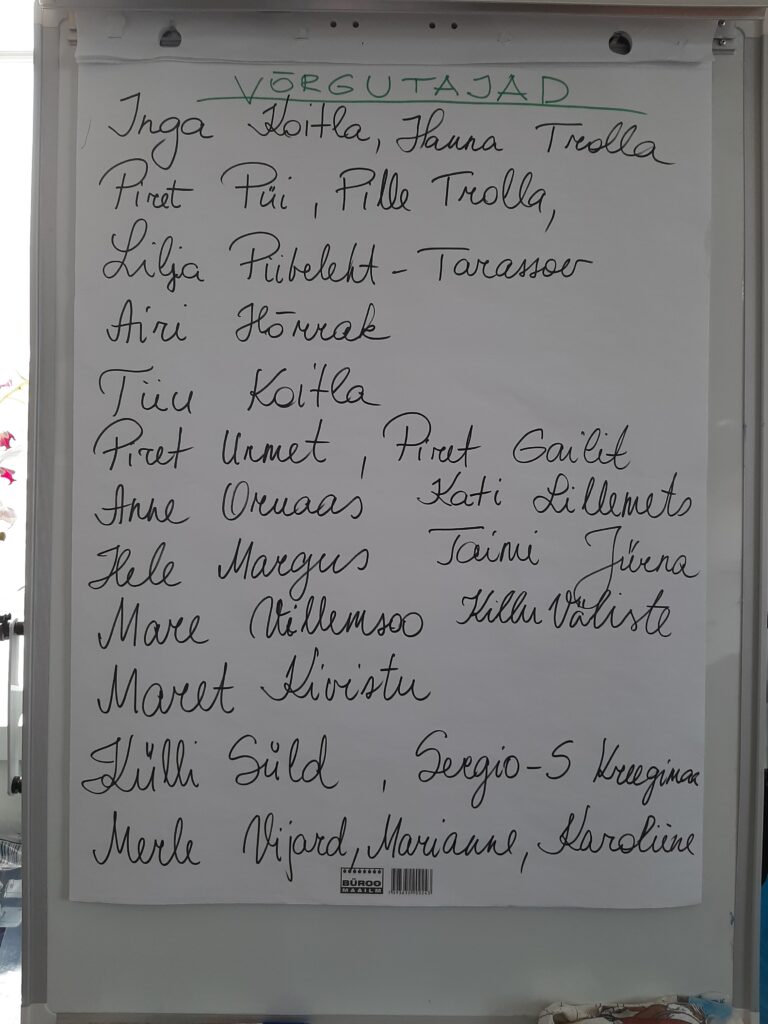 VÕRGUTAJAD
Inga Koitla, Hanna Trolla
Piret Püi, Pille Trolla,
Lilja Piibeleht-Tarassov
Airi Hõrrak
Tiiu Koitla
Piret Urmet, Piret Gailit
Anne Oruaas Kati Lillemets
Hele Margus Taimi Jürna
Mare Villemsoo Killu Väliste
Maret Kivistu
Külli Süld, Sergio-S Kreegimaa
Merle Vijard, Marianne, Karoliine
BÜROO
MAAILM